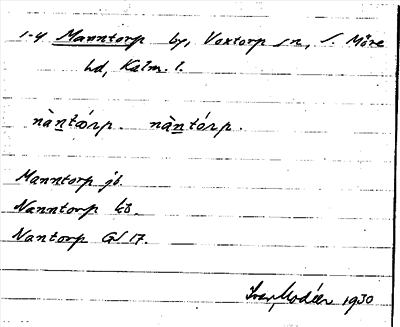 1-4 Manntorp by, Voxtorp sn, S. Möre
hd, Kalm. l.
nàntórp. nàntórp.
Manntorp jb.
Nanntorp kb.
Nantorp GS 17.
Ivar Modéer 1930